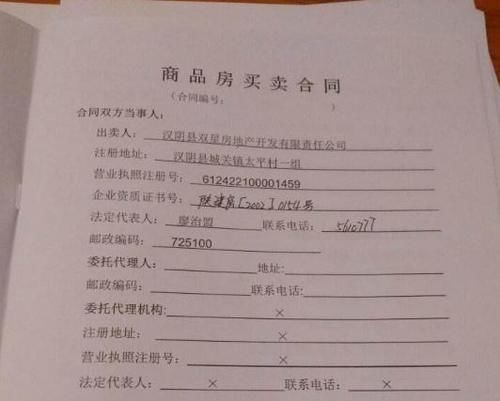 商品房买卖合同
（合同编号： ）
合同双方当事人：
出卖人： 汉阴县双星房地产开发有限责任公司
注册地址： 汉阴县城关镇太平村一组
营业执照注册号： 612422100001459
企业资质证书号： 陕建房[2002]0154号
法定代表人： 廖治盟 联系电话： 5610777
邮政编码： 725100
委托代理人： 地址:
邮政编码: 联系电话:
委托代理机构: ×
注册地址: ×
营业执照注册号: ×
法定代表人: × 联系电话: ×